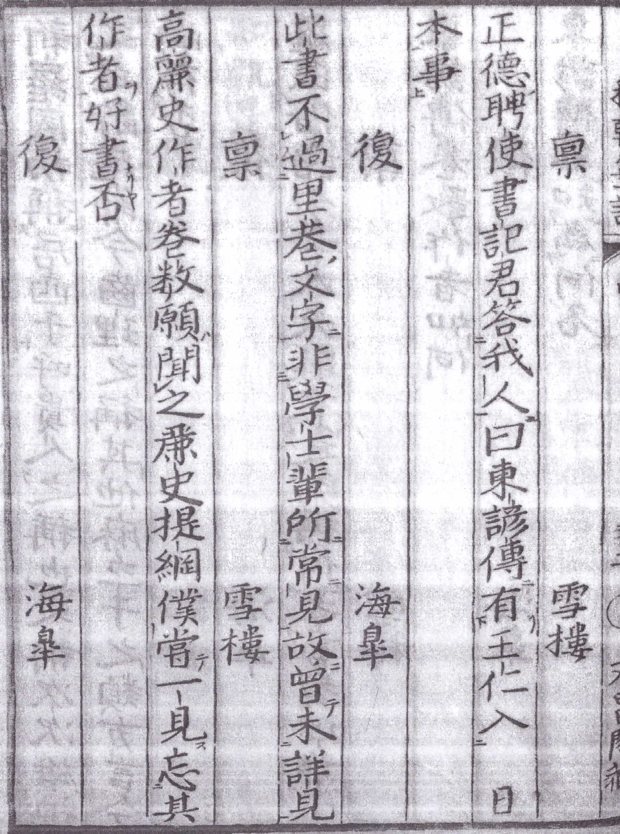 稟 雪樓
正德聘使書記君答我人曰東諺傳有王仁入日
本事
復 海皐
此書不過里巷文字非學士輩所常見故曾未詳見
稟 雪樓
高麗史作者卷數願聞之兼史提綱僕嘗一見忘其
作者好書否
復 海皐